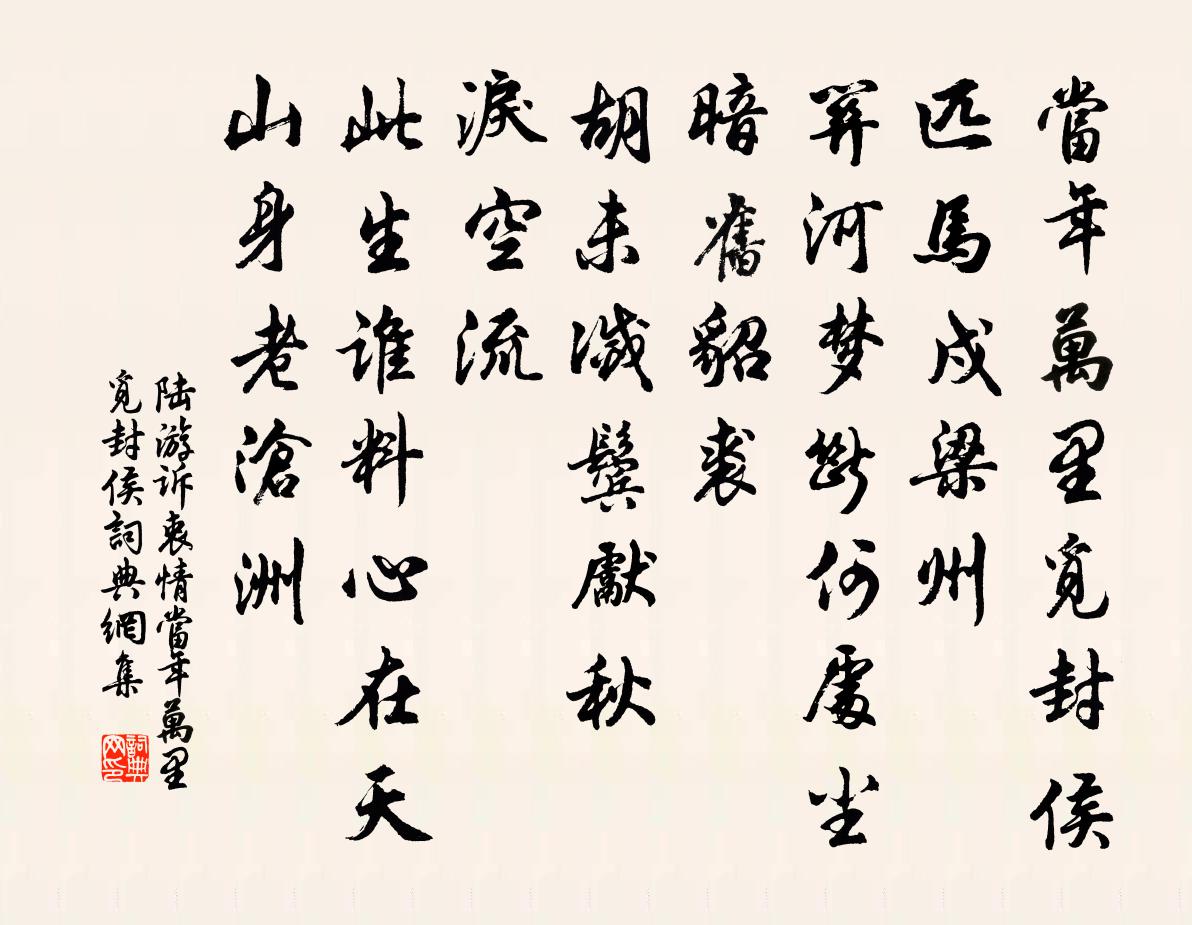 當年萬里覓封侯
匹馬戍梁州
關河梦斷何處尘
暗舊貂裘
胡未滅鬢獻秋
淚空流
此生誰料心在天
山身老滄洲
陆游诉衷情當年萬里
覓封侯詞典網集
詞典
网印